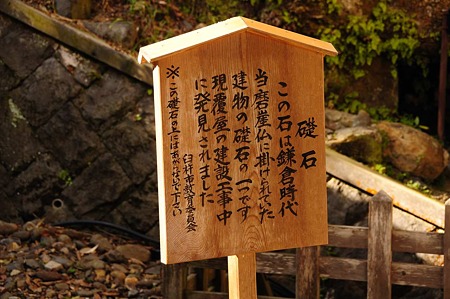 礎石
この石は鎌倉時代
当磨崖仏に掛けられてた
建物の礎石の一つです
現覆屋の建設工事中
に発見されました
臼杵市教育委員会
※この礎石の上にはあがらないで下さい